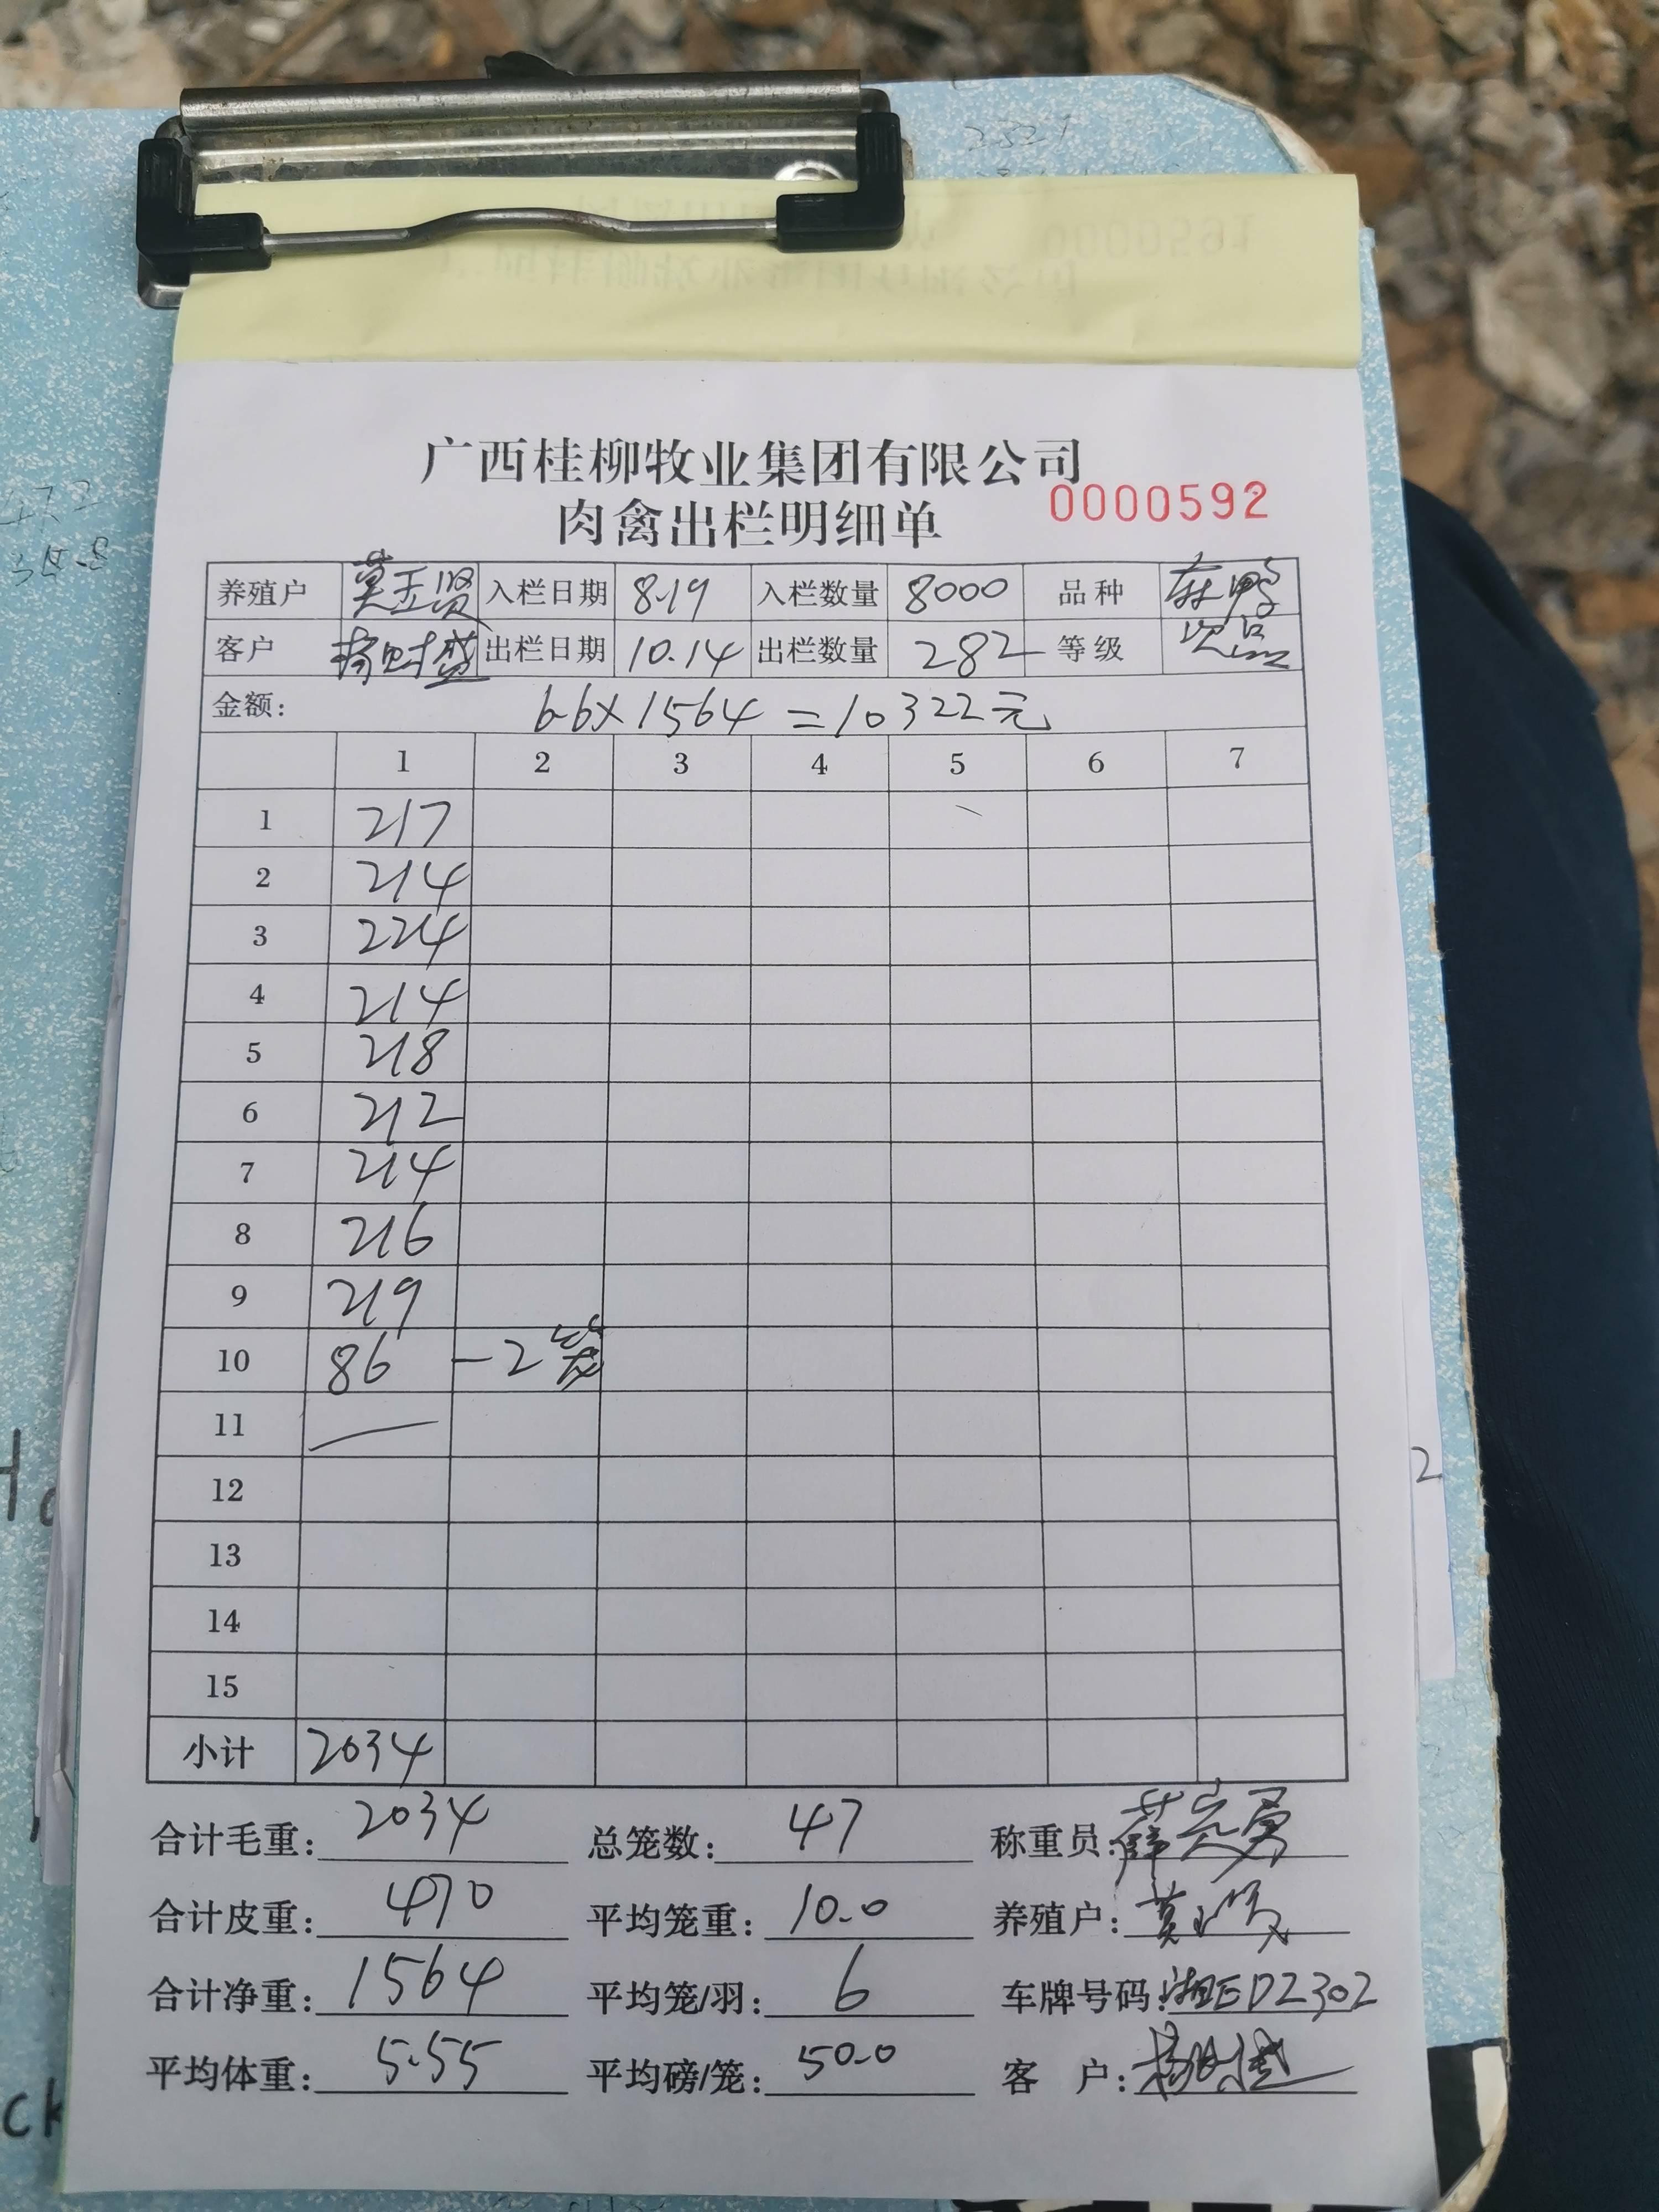 广西桂柳牧业集团有限公司
肉禽出栏明细单 0000592
养殖户 莫玉贤 入栏日期 8.19 入栏数量 8000 品种 麻鸭
客户 杨财盛 出栏日期 10.14 出栏数量 282 等级 次品
金额: 6.6×1564=10322元
1 2 3 4 5 6 7
1 217
2 214
3 224
4 214
5 218
6 212
7 214
8 216
9 219
10 86 -2笼
11
12
13
14
15
小计 2034
合计毛重: 2034 总笼数: 47 称重员:
合计皮重: 470 平均笼重: 10.0 养殖户: 莫玉贤
合计净重: 1564 平均笼/羽: 6 车牌号码: 湘EDZ302
平均体重: 5.55 平均磅/笼: 50.0 客 户: 杨财盛